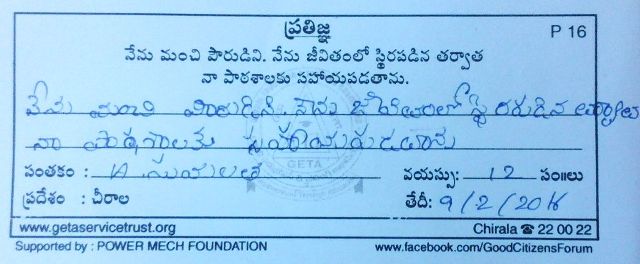 ప్రతిజ్ఞ
P 16
నేను మంచి పౌరుడిని. నేను జీవితంలో స్థిరపడిన తర్వాత
నా పాఠశాలకు సహాయపడతాను.
నేను మంచి పౌరుడిని. నేను జీవితంలో స్థిరపడిన
నా పాఠశాలకు సహాయపడతాను
GETA
సంతకం :
వయస్సు: 12 సం॥లు
ప్రదేశం : చీరాల
తేదీ: 9/2/2016
www.getaservicetrust.org
Chirala ☎ 22 00 22
Supported by : POWER MECH FOUNDATION
www.facebook.com/GoodCitizensForum